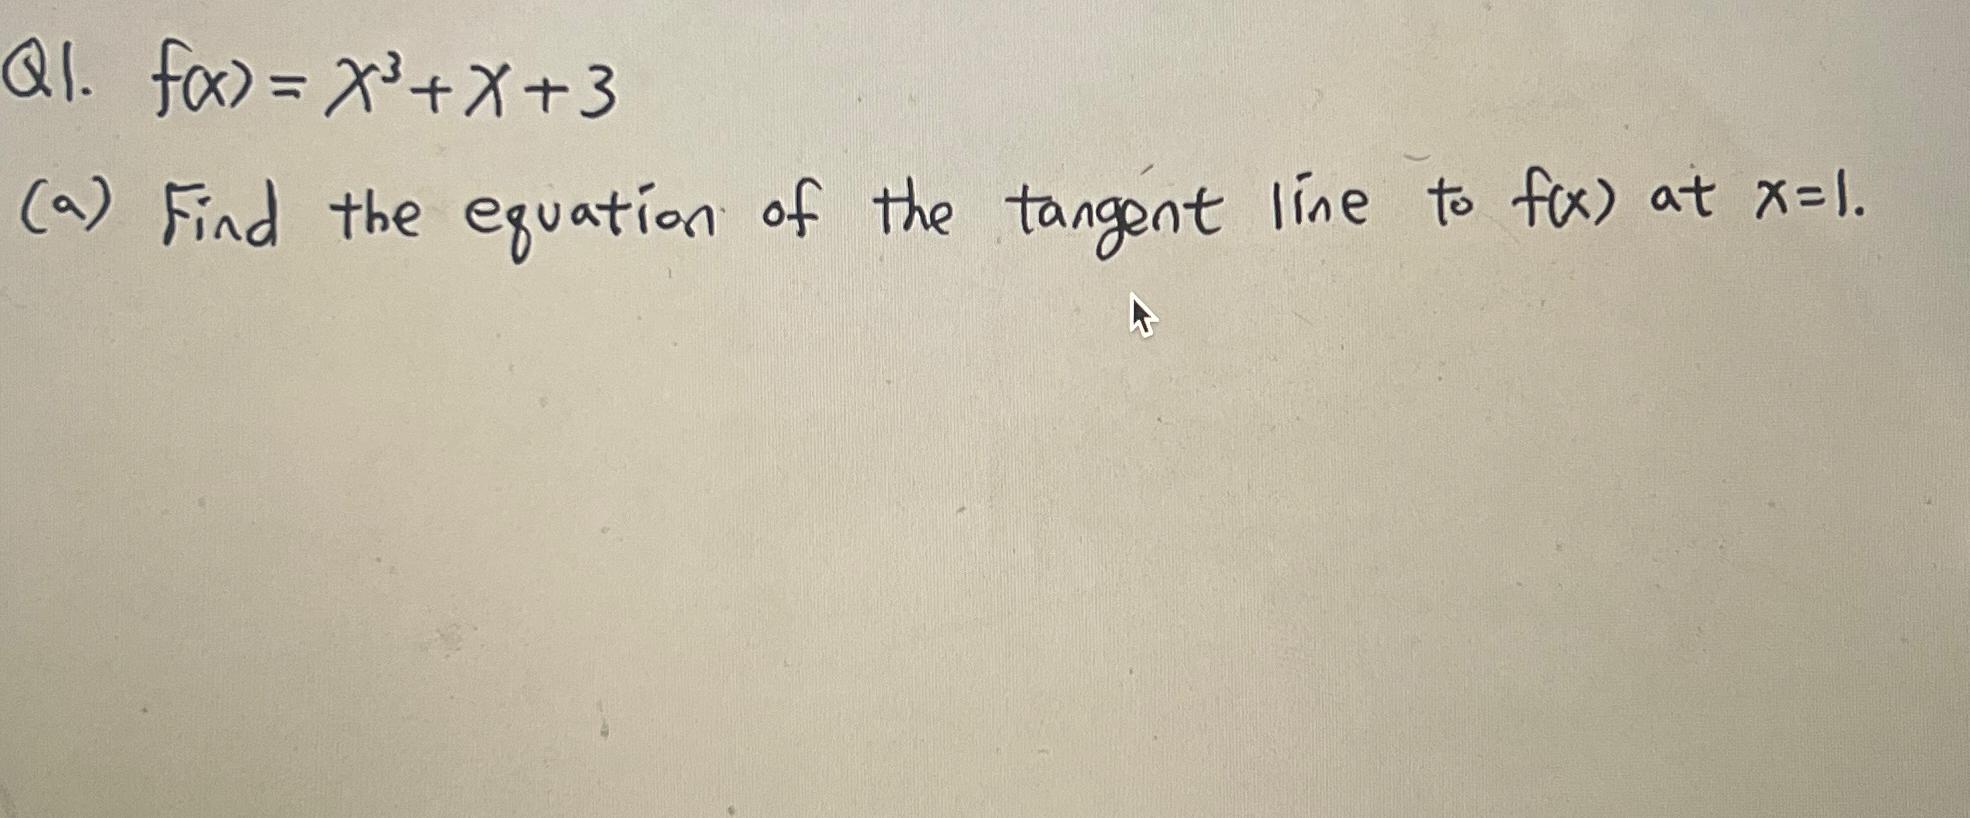 Q1. f(x) = x³ + x + 3
(a) Find the equation of the tangent line to f(x) at x=1.